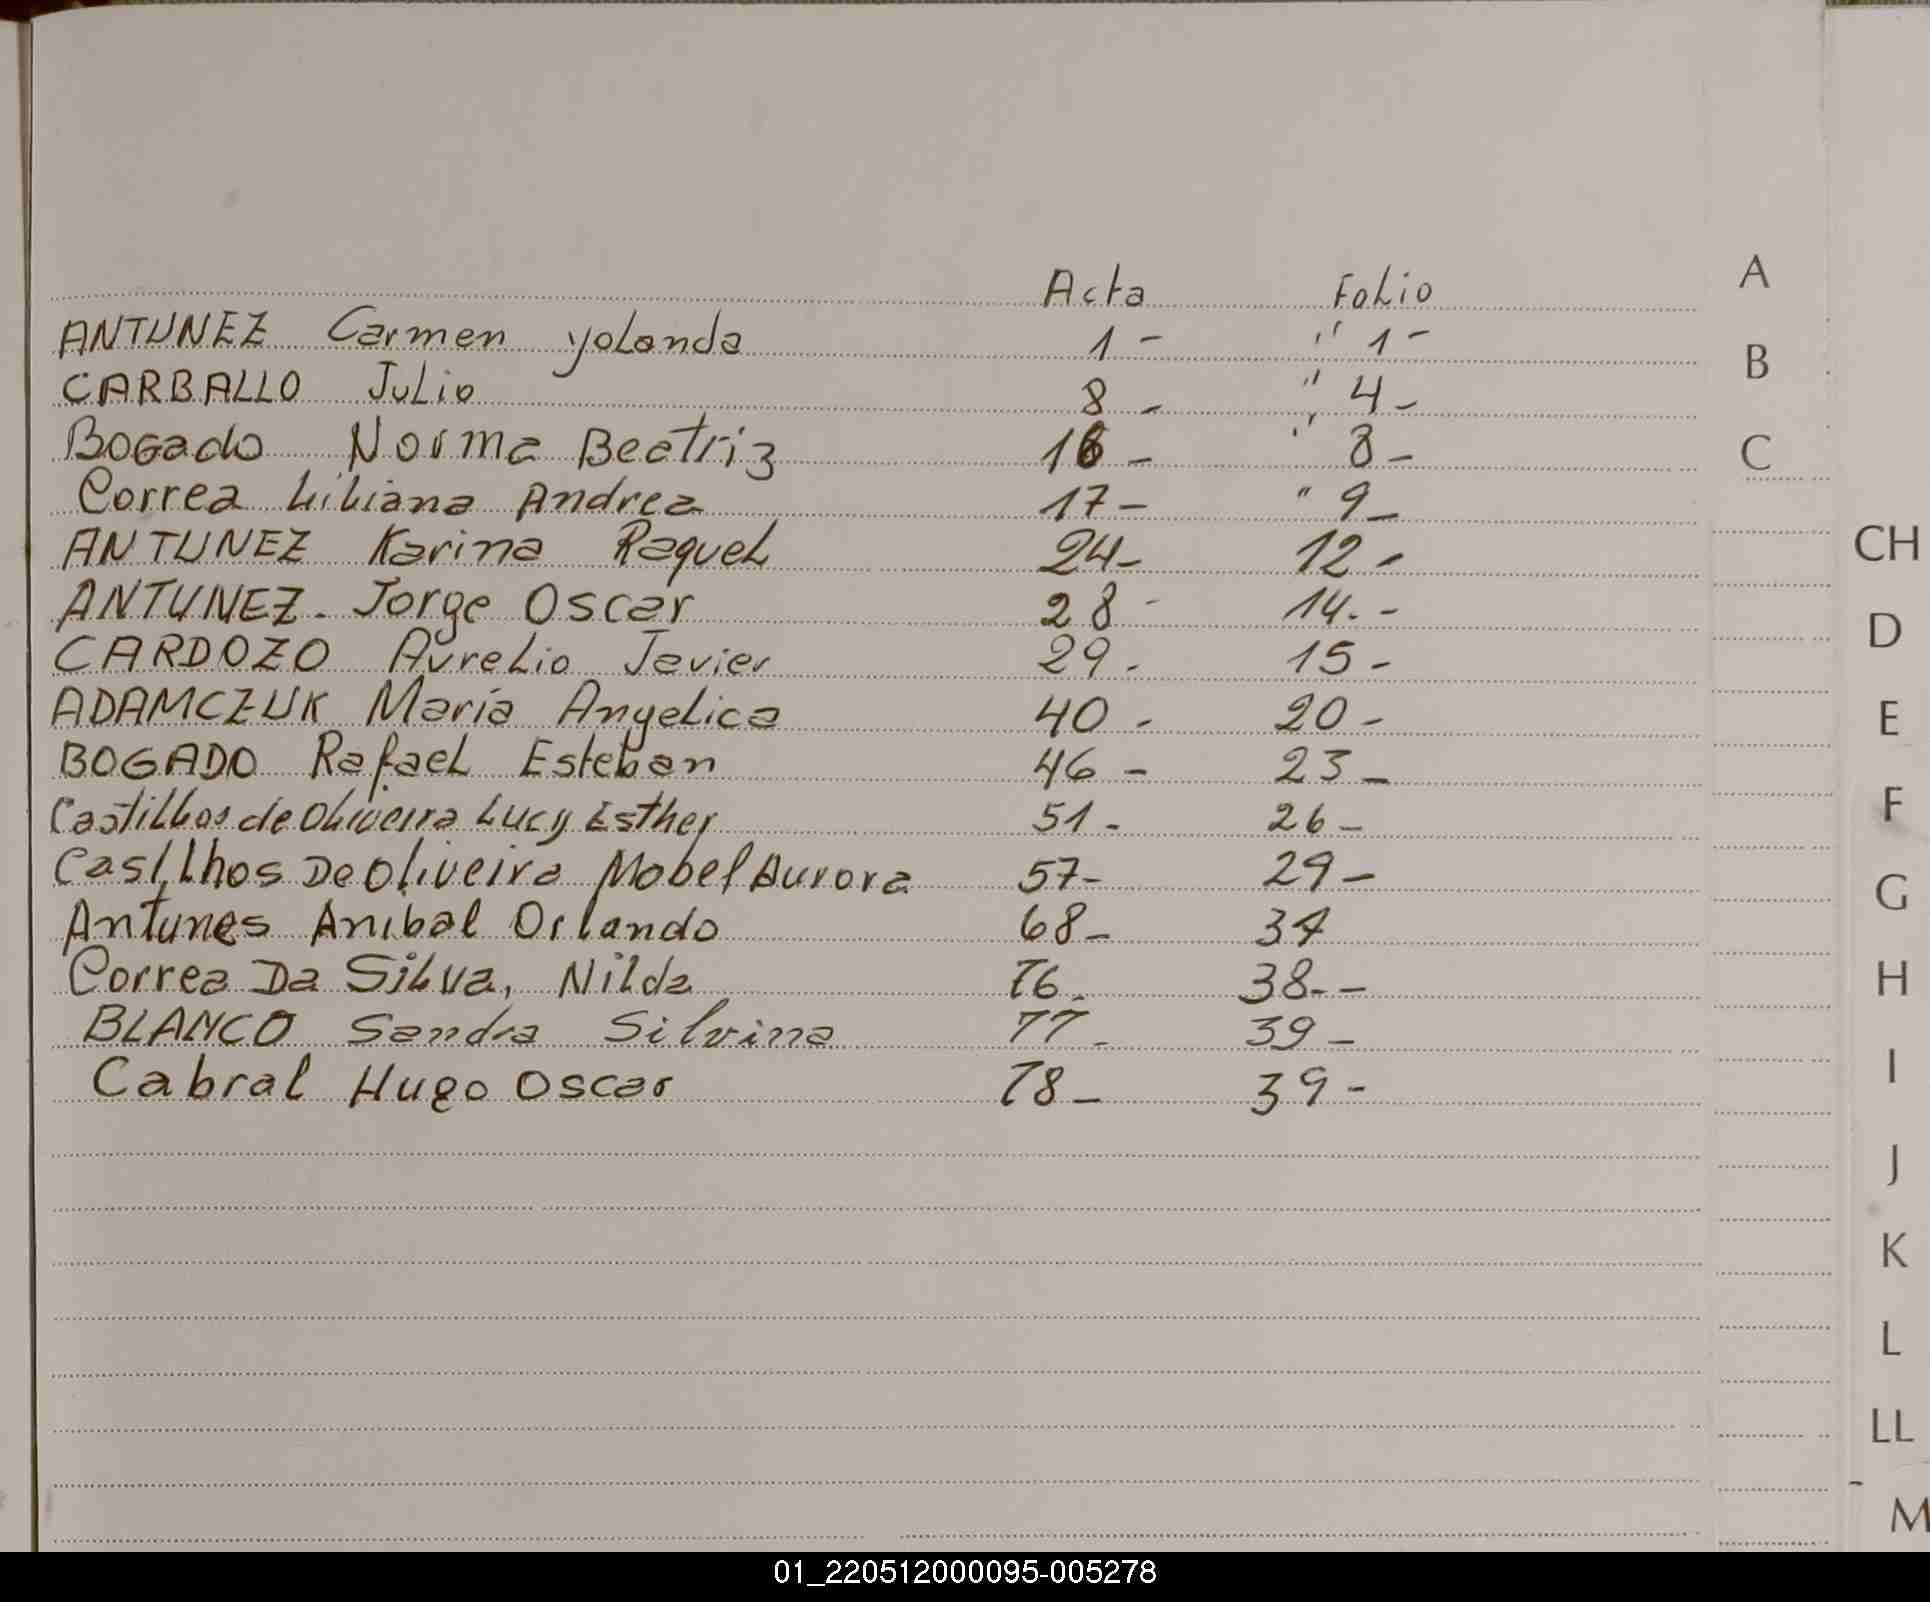 Acta Folio A
ANTUNEZ Carmen Yolanda 1 - " 1 -
B
CARBALLO Julio 8 - " 4 -
Bogado Norma Beatriz 16 - " 8 -
C
Correa Liliana Andrea 17 - " 9 -
ANTUNEZ Karina Raquel 24 - 12 -
CH
ANTUNEZ - Jorge Oscar 28 - 14. -
D
CARDOZO Aurelio Javier 29 - 15 -
ADAMCZUK María Angelica 40 - 20 -
E
BOGADO Rafael Esteban 46 - 23 -
Castilhos de Oliveira Lucy Esther 51 - 26 -
F
Castilhos De Oliveira Mabel Aurora 57 - 29 -
G
Antunes Anibal Orlando 68 - 34
Correa Da Silva, Nilda 76 - 38 - -
H
BLANCO Sandra Silvina 77 - 39 -
Cabral Hugo Oscar 78 - 39 -
I
J
K
L
LL
M
01_220512000095-005278